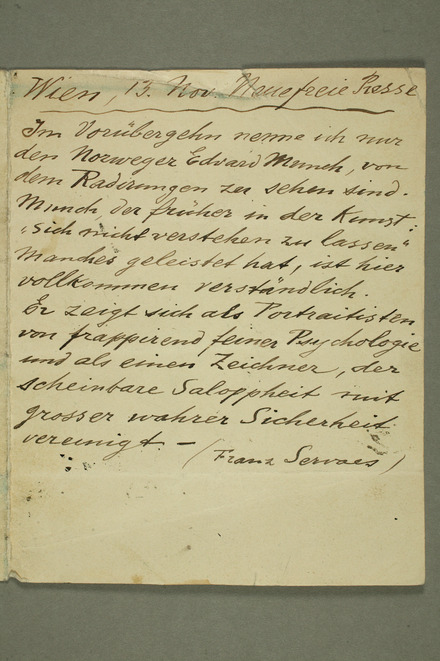 Wien, 13. Nov Neuefreie Presse
Im Vorübergehn nenne ich nur
den Norweger Edvard Munch, von
dem Radirungen zu sehen sind.
Munch, der früher in der Kunst:
„sich nicht verstehen zu lassen“
manches geleistet hat, ist hier
vollkommen verständlich.
Er zeigt sich als Portraitisten
von frappirend feiner Psychologie
und als einen Zeichner, der
scheinbare Saloppheit mit
grosser wahrer Sicherheit
vereinigt. –
(Franz Servaes)